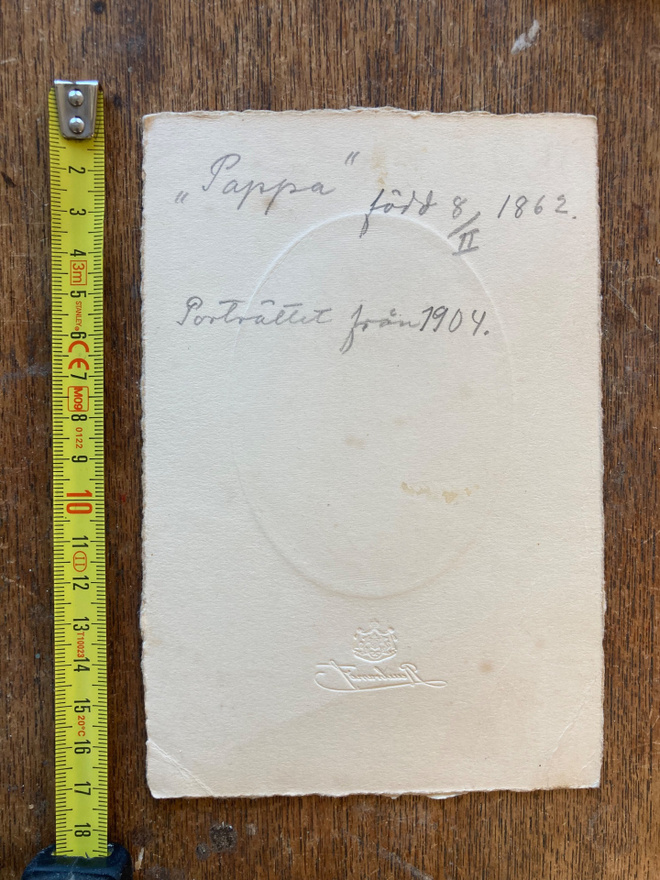 „Pappa” född 8/II 1862.
Porträttet från 1904.
2
3
4
3m
5
STANLEY
6
CE
7
M09
8
0122
9
10
11
II
12
13
T10023
14
15
20°C
16
17
18